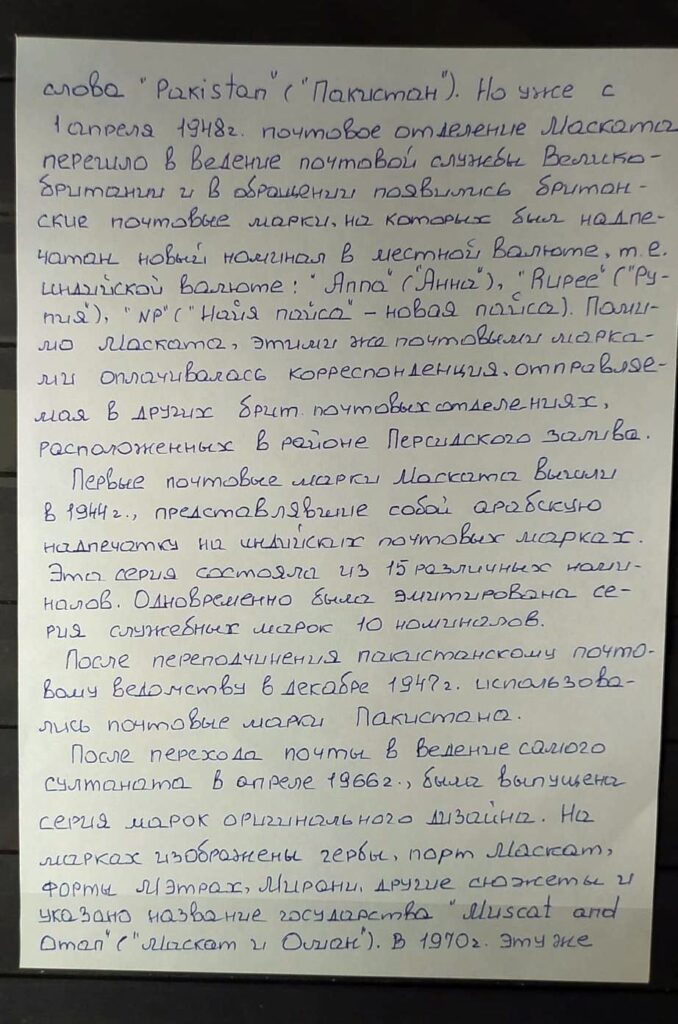 слова "Pakistan" ("Пакистан"). Но уже с
1 апреля 1948г. почтовое отделение Маската
перешло в ведение почтовой службы Велико-
британии и в обращении появились британ-
ские почтовые марки, на которых был надпе-
чатан новый номинал в местной валюте, т.е.
индийской валюте: "Anna" ("Анна"), "Rupee" ("Ру-
пия"), "NP" ("Найя пайса" - новая пайса). Поми-
мо Маската, этими же почтовыми марка-
ми оплачивалась корреспонденция, отправляе-
мая в других брит. почтовых отделениях,
расположенных в районе Персидского залива.
Первые почтовые марки Маската вышли
в 1944г., представлявшие собой арабскую
надпечатку на индийских почтовых марках.
Эта серия состояла из 15 различных номи-
налов. Одновременно была эмитирована се-
рия служебных марок 10 номиналов.
После переподчинения пакистанскому почто-
вому ведомству в декабре 1947г. использова-
лись почтовые марки Пакистана.
После перехода почты в ведение самого
султаната в апреле 1966г., была выпущена
серия марок оригинального дизайна. На
марках изображены гербы, порт Маскат,
форты Мэтрах, Мирани, другие сюжеты и
указано название государства "Muscat and
Oman" ("Маскат и Оман"). В 1970г. эту же